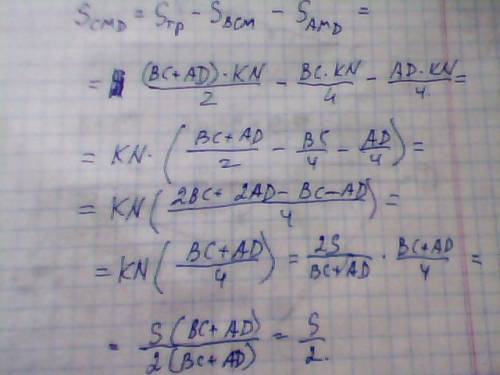 S_CMD = S_тр - S_BCM - S_AMD =
= (BC+AD)·KN/2 - BC·KN/4 - AD·KN/4 =
= KN·(BC+AD/2 - BC/4 - AD/4) =
= KN(2BC+2AD-BC-AD/4) =
= KN(BC+AD/4) = 2S/BC+AD · BC+AD/4 =
= S(BC+AD)/2(BC+AD) = S/2.